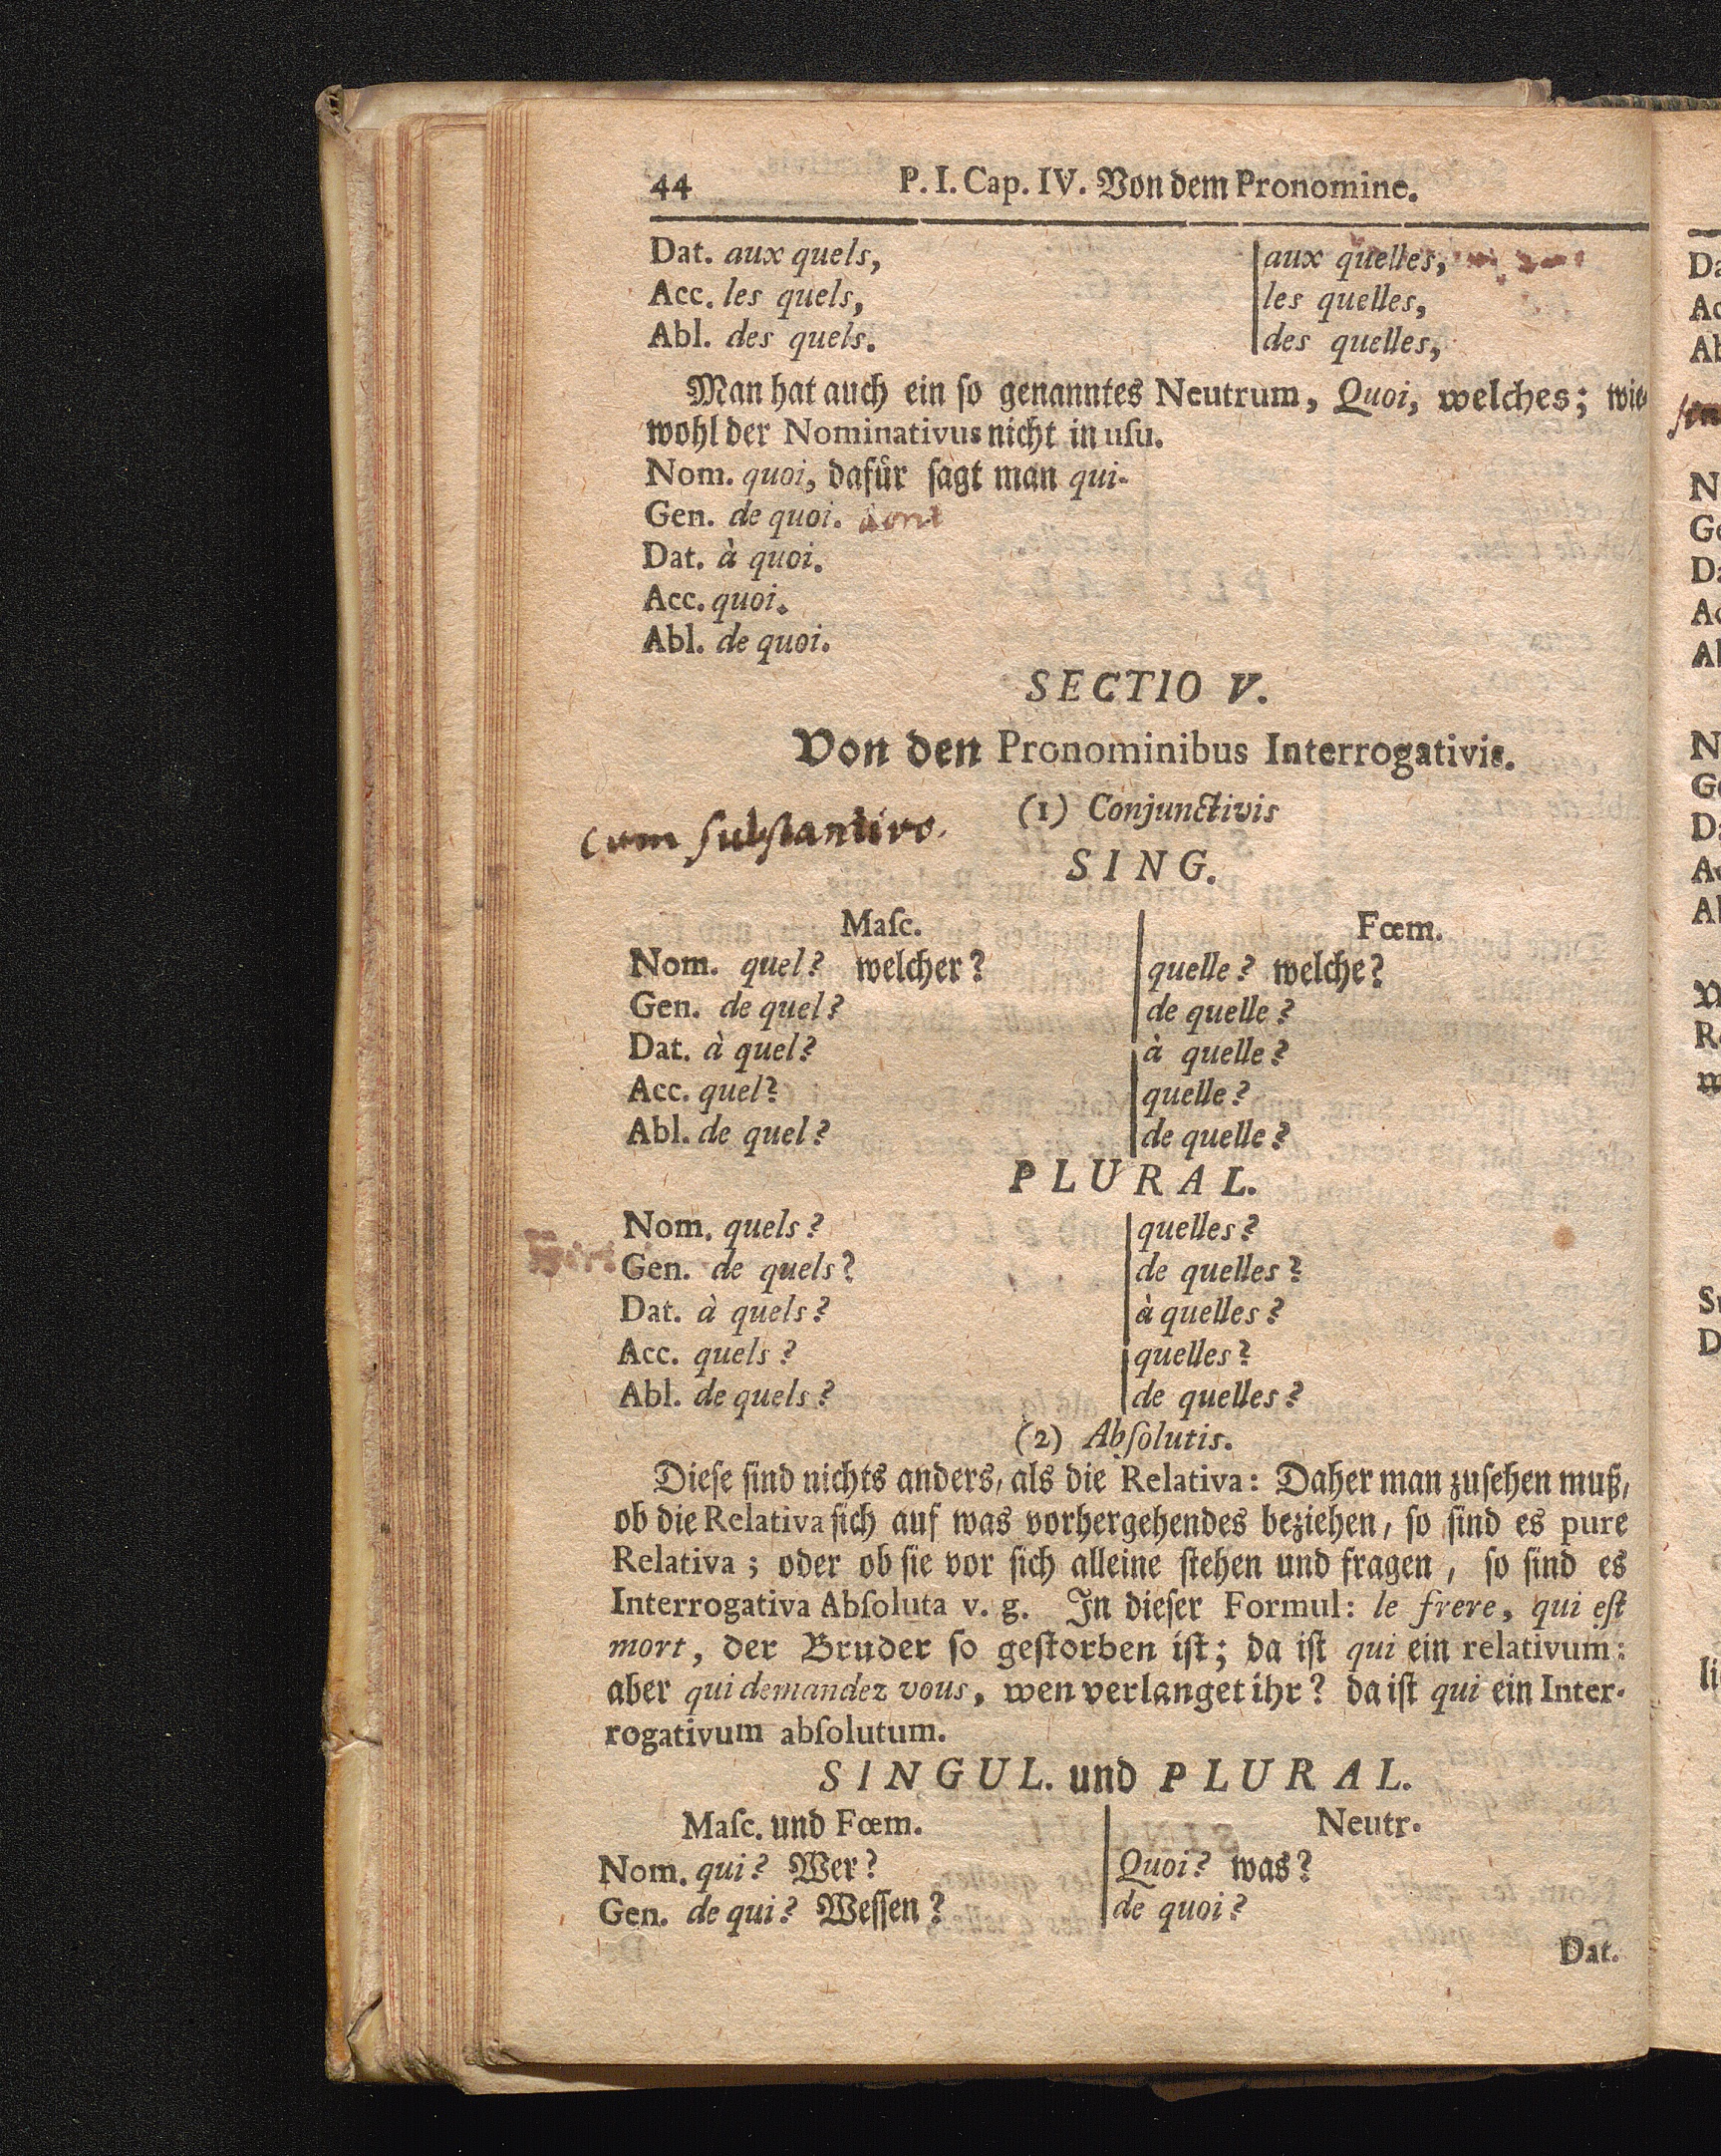 44 P. I. Cap. IV. Von dem Pronomine.
Dat. aux quels, aux quelles,
Acc. les quels, les quelles,
Abl. des quels. des quelles,
Man hat auch ein ſo genanntes Neutrum, Quoi, welches; wie-
wohl der Nominativus nicht in uſu.
Nom. quoi, dafür ſagt man qui.
Gen. de quoi. dont
Dat. à quoi.
Acc. quoi.
Abl. de quoi.
SECTIO V.
Von den Pronominibus Interrogativis.
(1) Conjunctivis
cum ſubſtantivo.
SING.
Maſc. Fœm.
Nom. quel? welcher? quelle? welche?
Gen. de quel? de quelle?
Dat. à quel? à quelle?
Acc. quel? quelle?
Abl. de quel? de quelle?
PLURAL.
Nom. quels? quelles?
Gen. de quels? de quelles?
Dat. à quels? à quelles?
Acc. quels? quelles?
Abl. de quels? de quelles?
(2) Abſolutis.
Dieſe ſind nichts anders, als die Relativa: Daher man zuſehen muß,
ob die Relativa ſich auf was vorhergehendes beziehen, ſo ſind es pure
Relativa; oder ob ſie vor ſich alleine ſtehen und fragen, ſo ſind es
Interrogativa Abſoluta v. g. In dieſer Formul: le frere, qui eſt
mort, der Bruder ſo geſtorben iſt; da iſt qui ein relativum:
aber qui demandez vous, wen verlanget ihr? da iſt qui ein Inter-
rogativum abſolutum.
SINGUL. und PLURAL.
Maſc. und Fœm. Neutr.
Nom. qui? Wer? Quoi? was?
Gen. de qui? Weſſen? de quoi?
Dat.